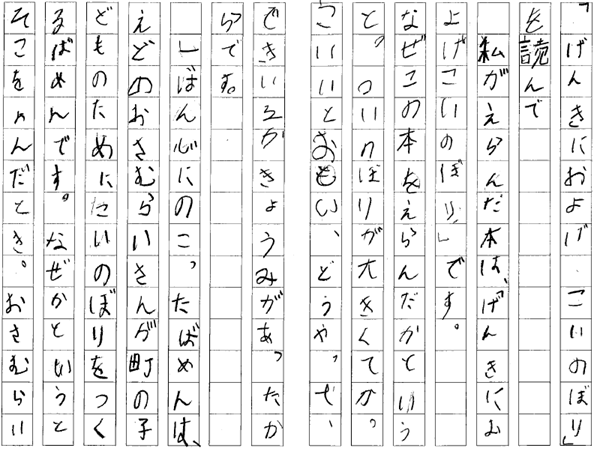 「げんきにおよげ こいのぼり」
を読んで
私がえらんだ本は、「げんきにお
よげこいのぼり」です。
なぜこの本をえらんだかという
と。こいのぼりが大きくてかっ
こいいとおもい、どうやって、
できいるかきょうみがあったか
らです。
一ばん心にのこったばめんは、
えどのおさむらいさんが町の子
どものためにこいのぼりをつく
るばめんです。なぜかというと
そこをよんだとき。おさむらい